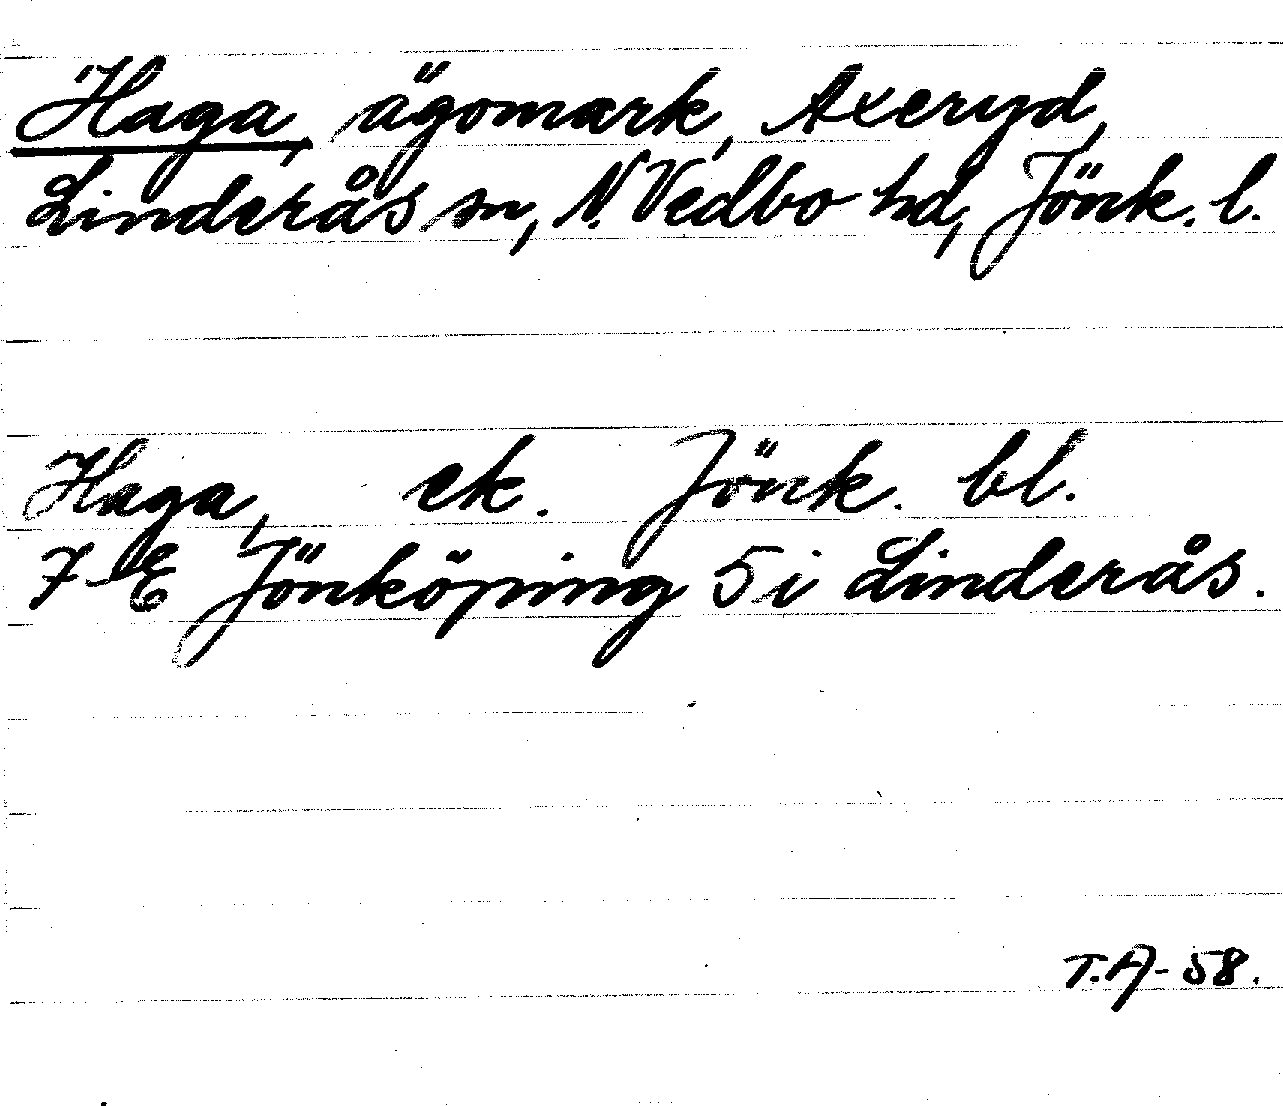 Haga, ägomark, Axeryd,
Linderås sn, N. Vedbo hd, Jönk. l.
Haga, ek. Jönk. bl.
7 E Jönköping 5 i Linderås.
T.A-58.